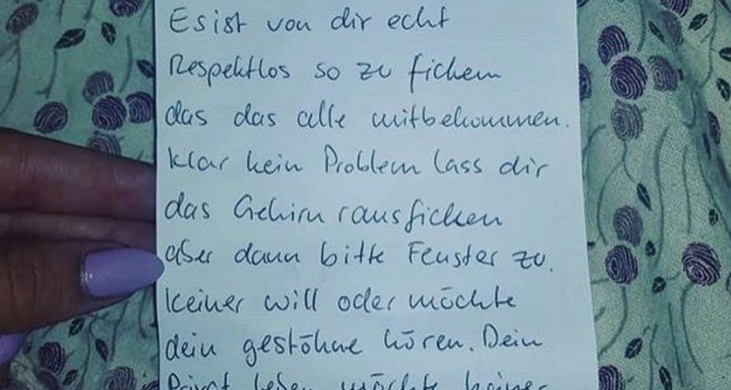 Es ist von dir echt
Respektlos so zu ficken
das das alle mitbekommen.
Klar kein Problem lass dir
das Gehirn rausficken
aber dann bitte Fenster zu.
Keiner will oder möchte
dein gestöhne hören. Dein
Privat leben möchte keiner